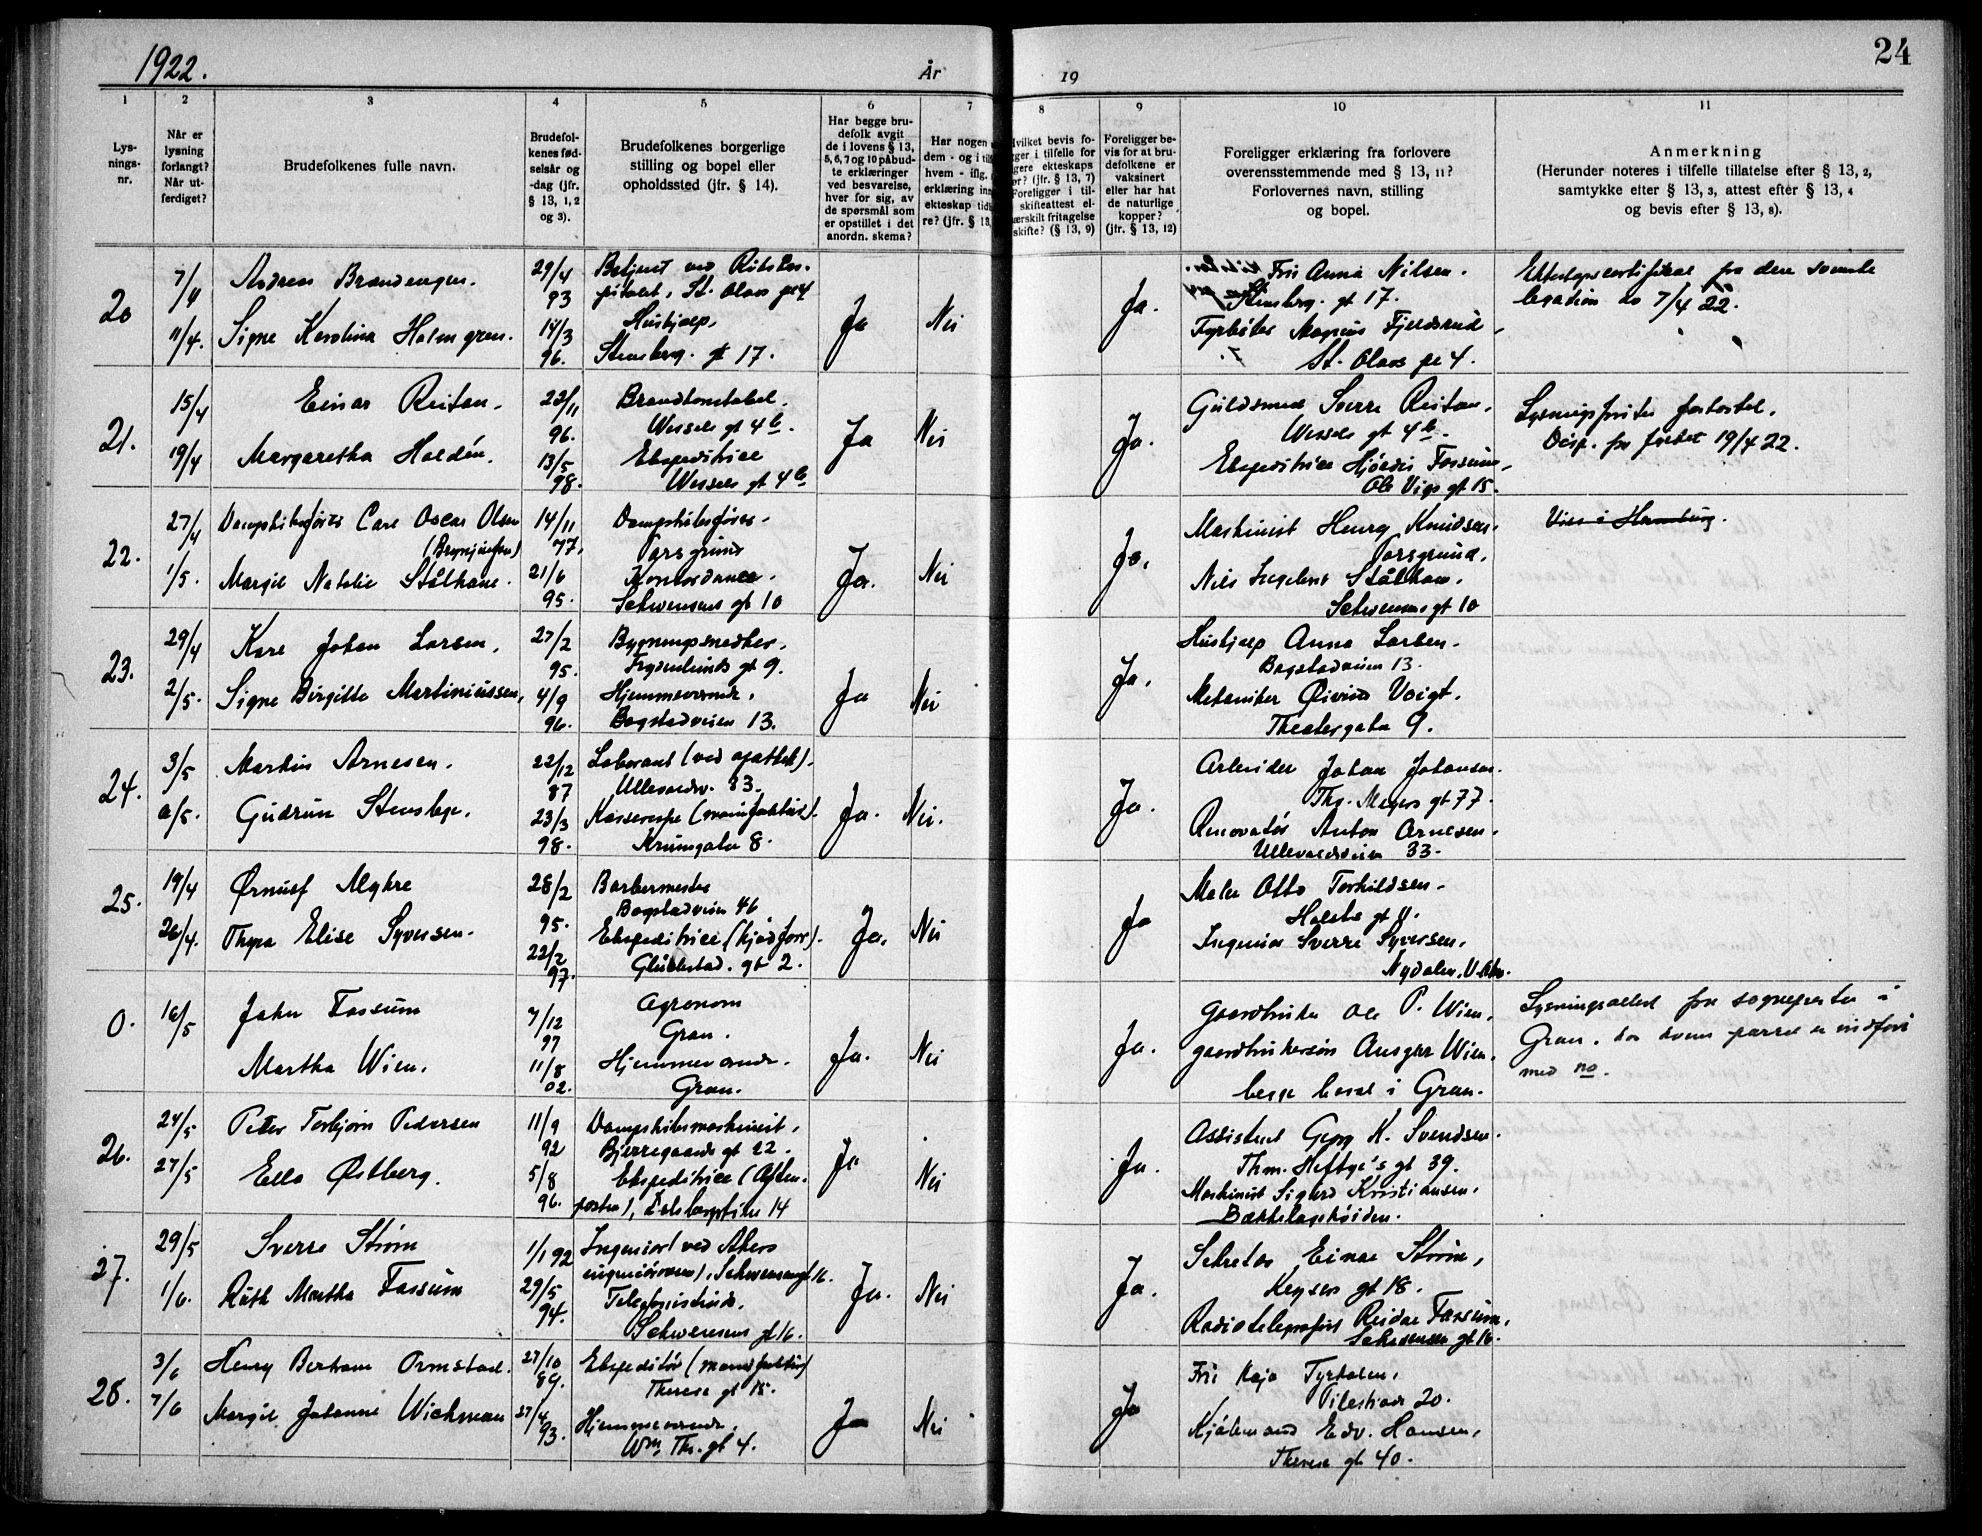 1922.
År
19
24
1
2
3
4
5
6
7
8
9
10
11
Lys-
nings-
nr.
Når er
lysning
forlangt?
Når ut-
ferdiget?
Brudefolkenes fulle navn.
Brudefol-
kenes fød-
selsår og
-dag (jfr.
§ 13, 1, 2
og 3).
Brudefolkenes borgerlige
stilling og bopel eller
opholdssted (jfr. § 14).
Har begge bru-
defolk avgit
de i lovens § 13,
5, 6, 7 og 10 påbud-
te erklæringer
ved besvarelse,
hver for sig, av
de spørsmål som
er opstillet i det
anordn. skema?
Har nogen
dem - og i tilf
hvem - iflg.
erklæring inn
ekteskap tid
re? (jfr. § 13,
Hvilket bevis fo-
gger i tilfelle for
gere ekteskaps
ør? (jfr. § 13, 7)
Foreligger i til-
skifteattest el-
ærskilt fritagelse
skifte? (§ 13, 9)
Foreligger be-
vis for at bru-
defolkene er
vaksinert
eller har hat
de naturlige
kopper?
(jfr. § 13, 12)
Foreligger erklæring fra forlovere
overensstemmende med § 13, 11?
Forlovernes navn, stilling
og bopel.
Anmerkning
(Herunder noteres i tilfelle tillatelse efter § 13, 2,
samtykke efter § 13, 3, attest efter § 13, 4
og bevis efter § 13, 8).
20
7/4
11/4.
Andreas Brændengen.
Signe Karolina Holmgren.
29/4
93
14/3
96.
Betjent ved Rikshos-
pitalet, St. Olavs gt 4
Hushjælp,
Stensberg. gt 17.
Ja
Nei
Ja.
Frk Anna Nilsen.
Stensberg. gt 17.
Fyrbøter Magnus Fjeldsrud,
St. Olavs gt 4.
fra den svenske
legation av 7/4 22.
21.
15/4
19/4
Einar Reitan.
Margaretha Haldén.
22/11
96.
13/5
98.
Brandkonstabel.
Wessels gt 4 b.
Ekspeditrice
Wessels gt 4 b
Ja
Nei
Ja.
Guldsmed Sverre Reitan,
Wessels gt 4 b.
Ekspeditrice Hjördis Fossum,
Ole Vigs gt 15.
Lysningsfristen forkortet.
Disp. fra 19/4 22.
22.
27/4
1/5.
Dampskibsfører Carl Oscar Olsen
(Brynjulfsen)
Margit Natalie Stålhane.
14/11
77.
21/6
95.
Dampskibsfører.
Porsgrund
Kontordame.
Schwensens gt 10
Ja.
Nei
Ja.
Maskinist Henry Knudsen.
Porsgrund.
Nils Ingebret Stålhane.
Schwensens gt 10
Vies i Hamburg.
23.
29/4
2/5.
Kare Johan Larsen,
Signe Birgitte Martiniussen,
27/2
95.
4/9
96.
Bygningssnekker.
Frydenlunds gt 9.
Hjemmeværende.
Bogstadveien 13.
Ja
Nei
Ja.
Hushjælp Anna Larsen.
Bogstadveien 13.
Mekaniker Øivind Voigt.
Theatergata 9.
24.
3/5
Martin Arnesen.
Gudrun Stensbye.
22/12
87
23/3
98.
Laborant (ved apothek).
Ullevaalsv. 33.
Kassererske (manufaktur).
Krumgaten 8.
Ja.
Nei.
Ja.
Arbeider Johan Johansen.
Thv. Meyers gt 77.
Renovatör Anton Arnesen.
Ullevaalsveien 33.
25.
19/4
26/4.
Ørnulf Myhre
Thyra Elise Syversen.
28/2
95.
22/2
97.
Barbermester
Bogstadveien 46
Ekspeditrice (kjødforr).
Glückstad. gt 2.
Ja.
Nei
Ja
Maler Otto Torkildsen.
Holsts gt 4.
Ingeniør Sverre Syversen,
Nydalen, V. Aker.
0.
16/5
John Fossum
Martha Wien.
7/12
97
11/8
02.
Agronom
Gran.
Hjemmeværende.
Gran.
Ja.
Nei
Ja.
Gaardbruker Ole P. Wien,
gaardbrukersøn Ansgar Wien.
begge bosat i Gran.
Lysningsattest fra sogneprsten i
Gran, hos hvem parret er indført
med no.
26.
24/5
27/5
Peter Torbjørn Pedersen
Ella Østberg.
11/9
92
5/8
96.
Dampskibsmaskinist,
Bjerregaards gt 22.
Ekspeditrice (Aften-
posten), 14
Ja
Nei
Ja.
Assistent Georg K. Svendsen.
Thm. Heftye's gt 39.
Maskinist Sigurd Kristiansen,
Bækkelagshøiden.
27.
29/5
1/6.
Sverre Strøm
Ruth Martha Fossum
1/1 92
29/5
94.
Ingeniør (ved Akers
ingeniörvæsen), Schwensensgt 16.
Telefonistinde.
Schwensens gt 16.
Ja.
Nei
Ja.
Sekretær Einar Strøm,
Keysers gt 18.
Radiotelegrafist Reidar Fossum,
Schwensens gt 16.
28.
3/6
7/6
Henry Berham Ormstad.
Margit Johanne Wichman
27/10
89.
27/4
93.
Ekspeditør (manufaktur)
Therese gt 15.
Hjemmeværende.
Wm. Th. gt 4.
Ja
Nei
Ja
Frk Kaja Fyrhølen,
Pilestræde 20.
Kjøbmand Edv. Hansen,
Therese gt 40.